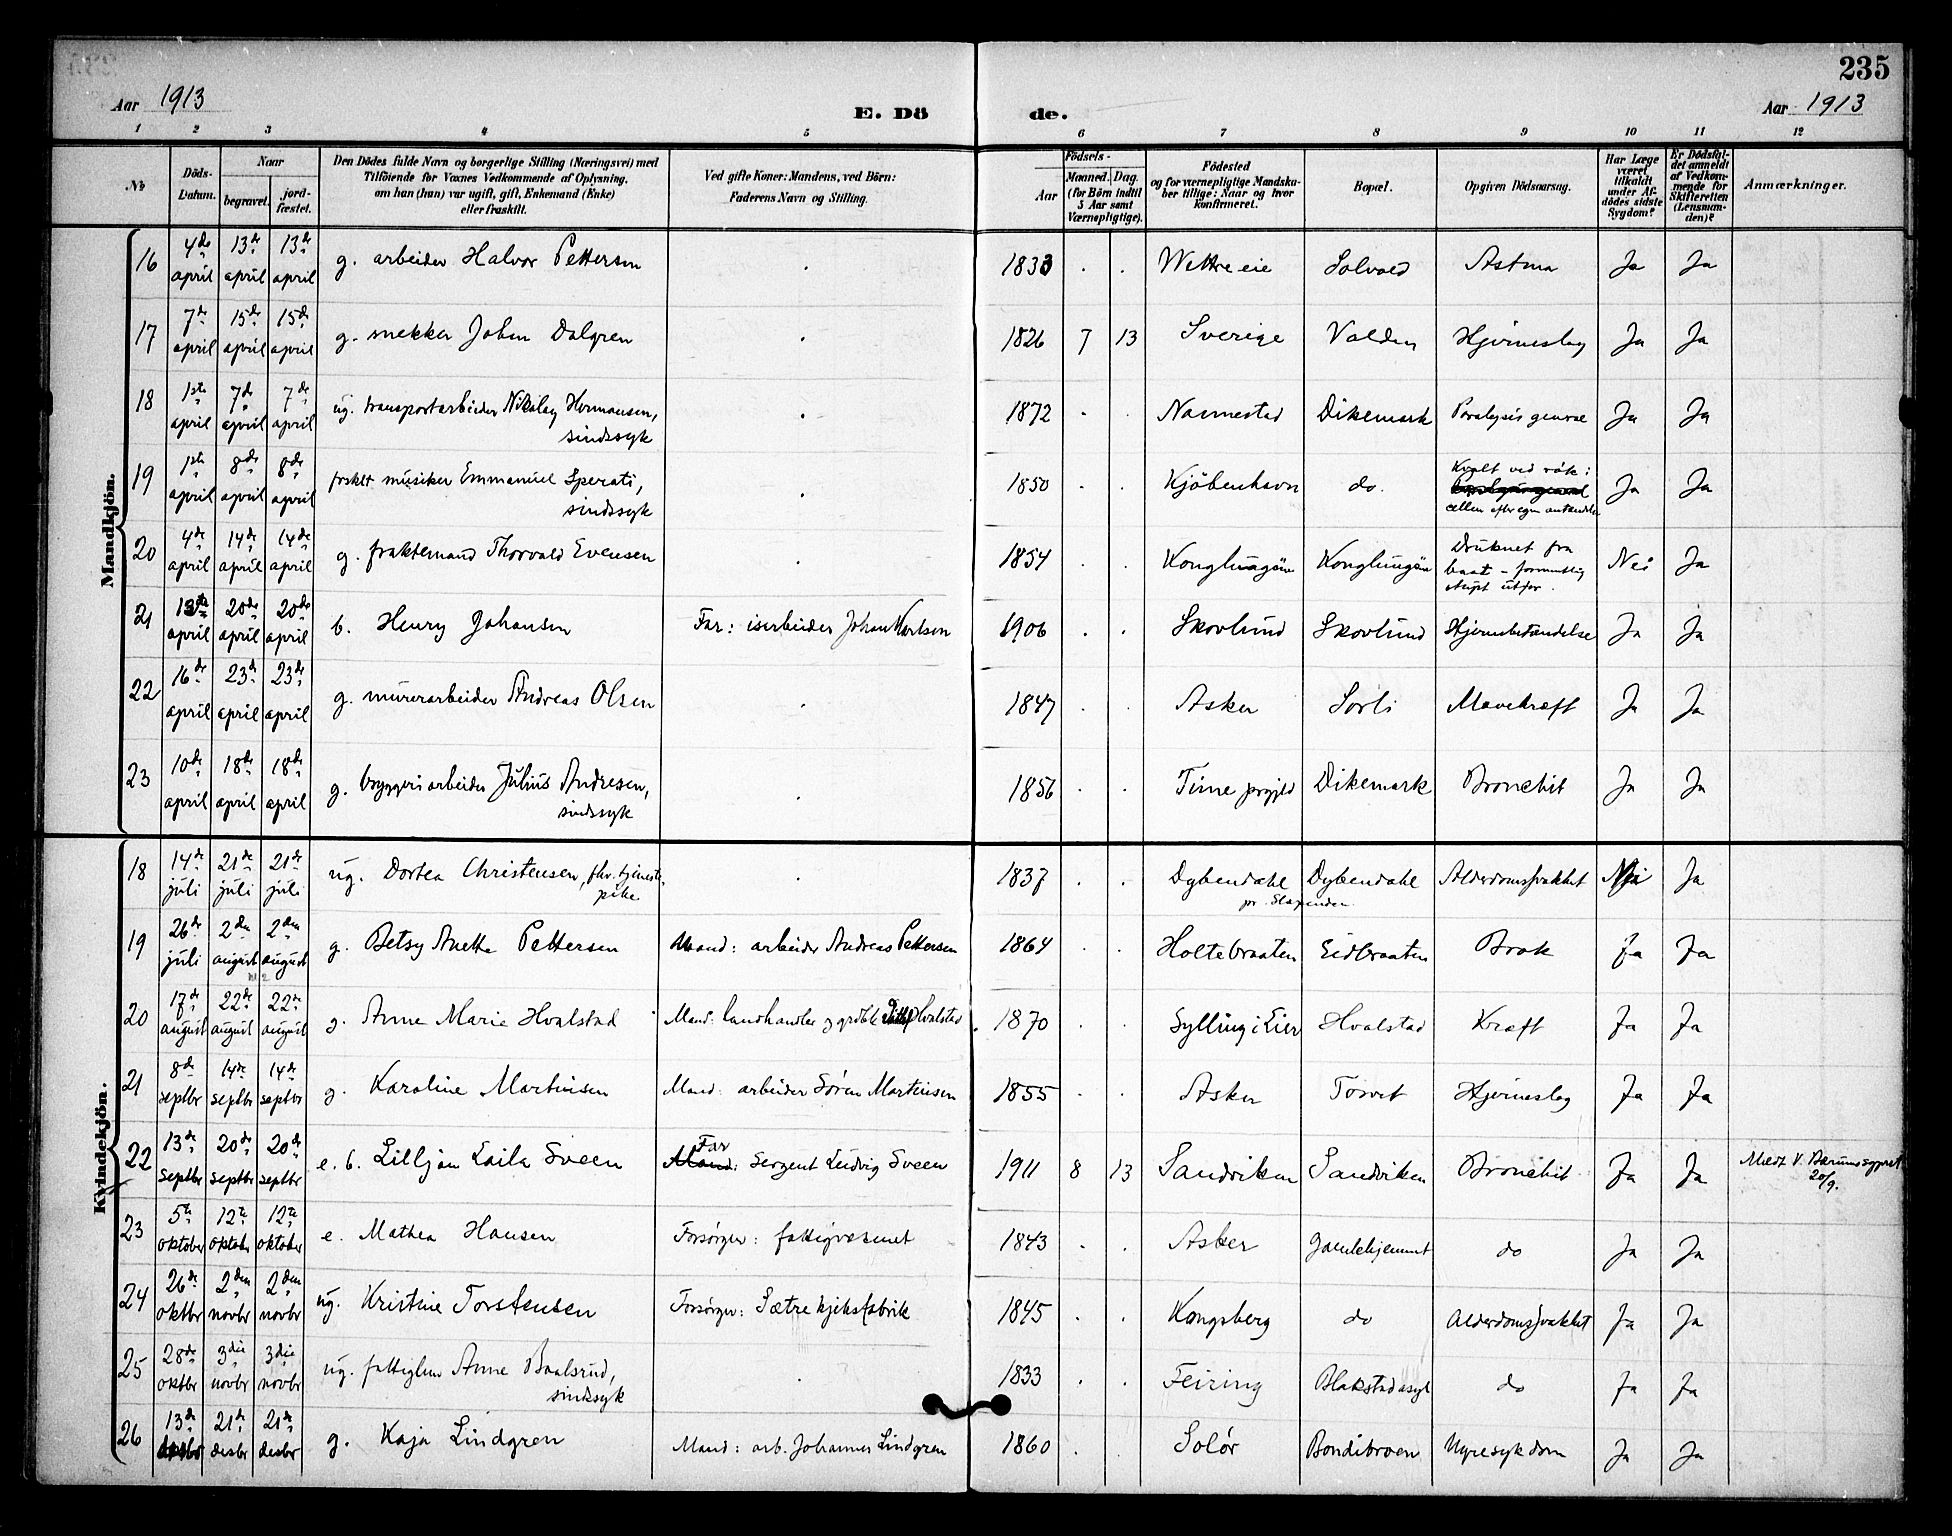 235
Aar 1913
E. Dö de.
Aar 1913
1 2 3 4 5 6 7 8 9 10 11 12
No
Döds-Datum.
Naar
begravet.
jord-fæstet.
Den Dödes fulde Navn og borgerlige Stilling (Næringsvei) med
Tilföiende for Voxnes Vedkommende af Oplysning,
om han (hun) var ugift, gift, Enkemand (Enke)
eller fraskilt.
Ved gifte Koner: Mandens, ved Börn:
Faderens Navn og Stilling.
Födsels-
Aar
Maaned. Dag.
(for Börn indtil
5 Aar samt
Værnepligtige).
Födested
og for værnepligtige Mandska-
ber tillige: Naar og hvor
konfirmeret.
Bopæl.
Opgiven Dödsaarsag.
Har Læge
været
tilkaldt
under Af-
dödes sidste
Sygdom?
Er Dödsfal-
det anmeldt
af Vedkom-
mende for
Skifteretten
(Lensman-
den)?
Anmærkninger.
Mandkjön.
16 4de april 13de april 13de april g. arbeider Halvor Pettersen . 1833 . . Wettre eie Solvold Astma Ja Ja
17 7de april 15de april 15de april g. snekker Johan Dalgren . 1826 7 13 Sverige Valden Hjerneslag Ja Ja
18 1ste april 7de april 7de april ug. transportarbeider Nikolay Hermansen, sindssyk . 1872 . . Nannestad Dikemark Paralysis generae Ja Ja
19 1ste april 8de april 8de april frskilt musiker Emmanuel Sperati, sindssyk . 1850 . . Kjöbenhavn do. Kvalt ved røk i cellen efter egen antændelse Ja Ja
20 4de april 14de april 14de april g. fraktemand Thorvald Evensen . 1854 . . Konglungöen Konglungöen Druknet fra baat - formentlig utfor. Nei Ja
21 13de april 20de april 20de april b. Henry Johansen Far: isarbeider Johan Karlsen 1906 . . Skovlund Skovlund Hjernebetændelse Ja Ja
22 16de april 23de april 23de april g. murerarbeider Andreas Olsen . 1847 . . Asker Sorli Mavekræft Ja Ja
23 10de april 18de april 18de april g. bryggeriarbeider Julius Andresen, sindssyk . 1856 . . Time prgjld Dikemark Bronchit Ja Ja
Kvindekjön.
18 14de juli 21de juli 21de juli ug. Dortea Christensen, fhv. tjeneste-pike . 1837 . . Dybendahl pr. Slependen Dybendahl Alderdomssvakhet Nei Ja
19 26de juli 2den august 2den august g. Betsy Anetta Pettersen Mand: arbeider Andreas Pettersen 1864 . . Holtebraaten Eidbraaten Brok Ja Ja
20 17de august 22de august 22de august g. Anne Marie Hvalstad Mand: landhandler g grdbk Hvalstad 1870 Sylling i Lier Hvalstad Kræft Ja Ja
21 8de septbr 14de septbr 14de septbr g. Karoline Martinsen Mand: arbeider Søren Martinsen 1855 . . Asker Torvet Hjerneslag Ja Ja
22 13de septbr 20de septbr 20de septbr e. b. Lilljan Laila Sveen Far Mand: Sergent Ludvig Sveen 1911 8 13 Sandviken Sandviken Bronchit Ja Ja Medt V. Bærums sgprst 20/9.
23 5te oktober 12te oktober 12te oktober e. Mathea Hansen Forsörger: fattigvæsenet 1843 . . Asker Gamlehjemmet do Ja Ja
24 26de oktbr 2den novbr 2den novbr ug. Kristine Torstensen Forsörger: Sætre kjeksfabrik 1845 . . Kongsberg do Alderdomssvakhet Ja Ja
25 28de oktbr 3die novbr 3die novbr ug. fattiglem Anne Baalsrud, sindssyk . 1833 . . Feiring Blakstad asyl do Ja Ja
26 13de desbr 21de desbr 21de desbr g. Kaja Lindgren Mand: arb. Johannes Lindgren 1860 . . Solör Bondibroen Nyresykdom Ja Ja